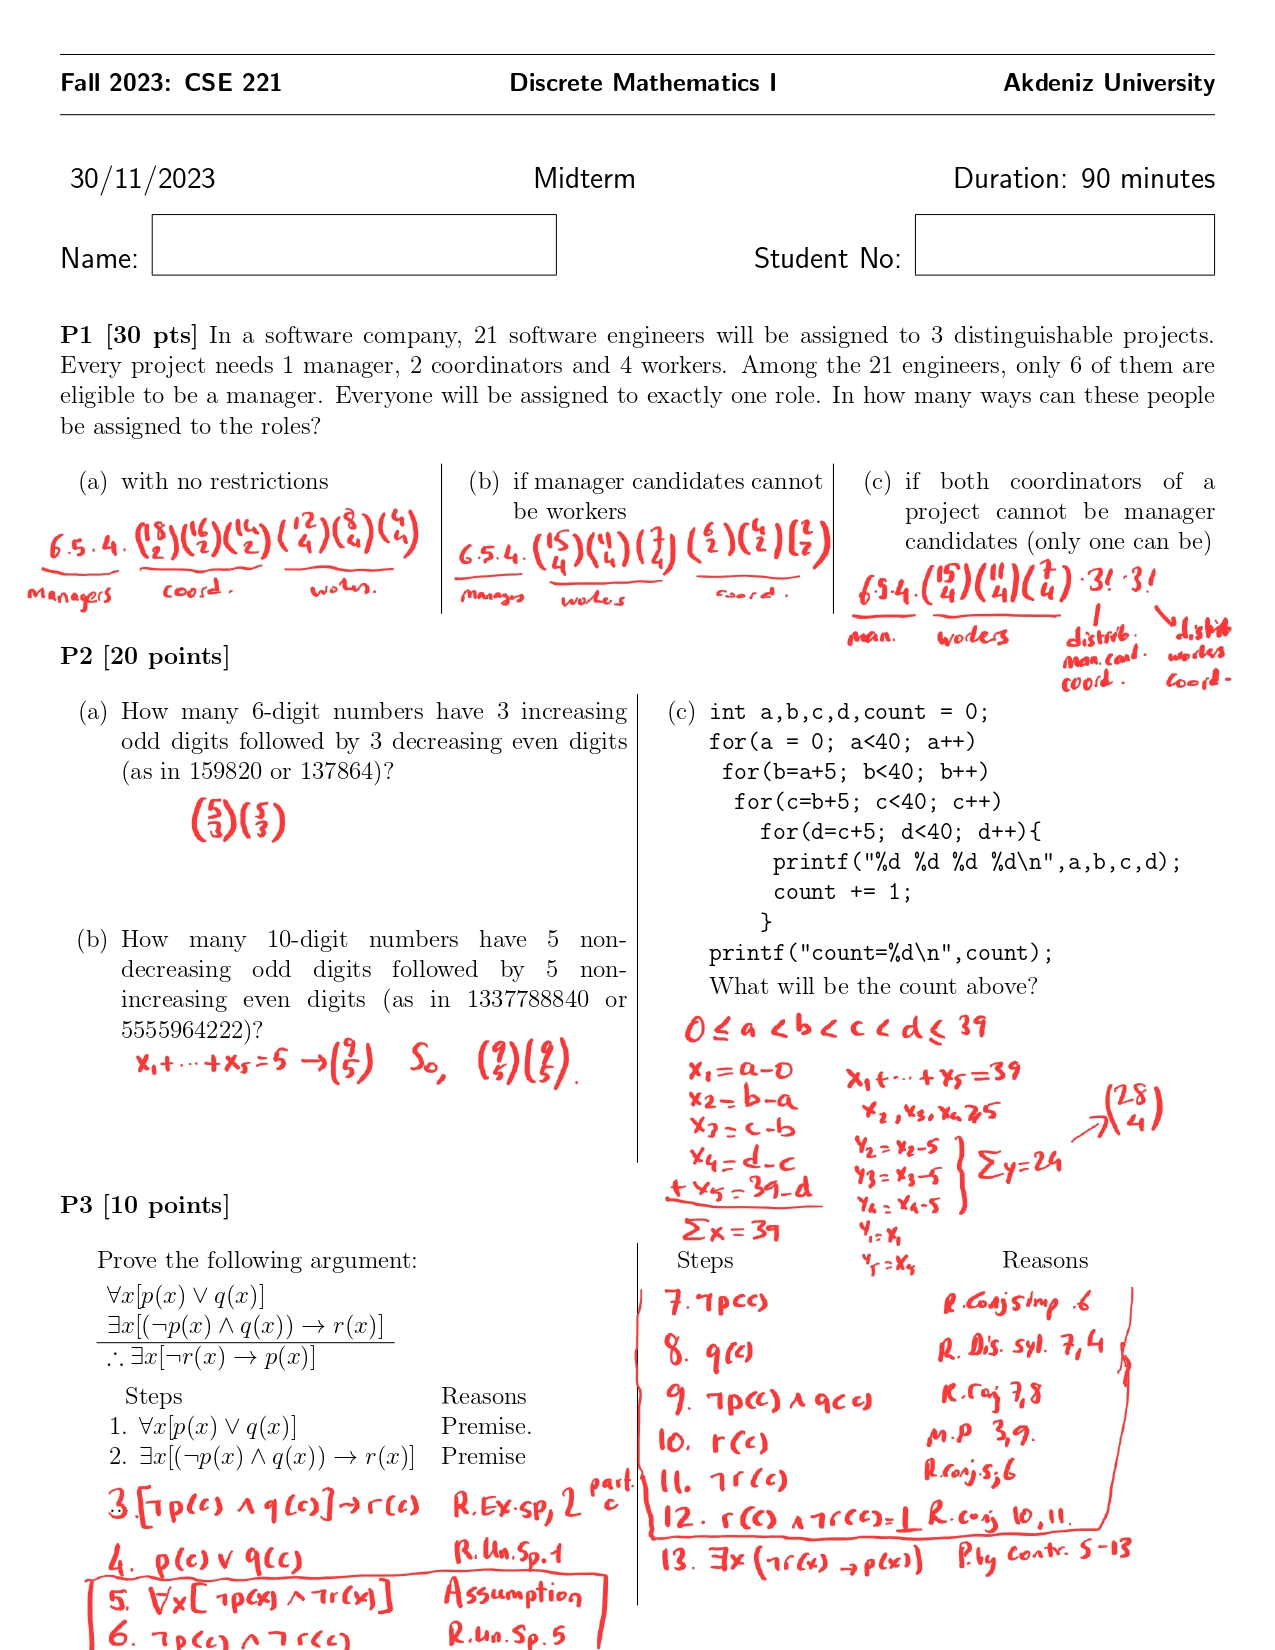 Fall 2023: CSE 221 Discrete Mathematics I Akdeniz University
30/11/2023 Midterm Duration: 90 minutes
Name: Student No:
P1 [30 pts] In a software company, 21 software engineers will be assigned to 3 distinguishable projects.
Every project needs 1 manager, 2 coordinators and 4 workers. Among the 21 engineers, only 6 of them are
eligible to be a manager. Everyone will be assigned to exactly one role. In how many ways can these people
be assigned to the roles?
(a) with no restrictions
6.5.4. (18 2)(16 2)(14 2) (12 4)(8 4)(4 4)
managers coord. wokes.
(b) if manager candidates cannot
be workers
6.5.4. (15 4)(11 4)(7 4) (6 2)(4 2)(2 2)
manages wokes coord.
(c) if both coordinators of a
project cannot be manager
candidates (only one can be)
6.5.4. (15 4)(11 4)(7 4) · 3! · 3!
man. workers
distrib.
man. cand.
coord.
distrib
workes
coord-
P2 [20 points]
(a) How many 6-digit numbers have 3 increasing
odd digits followed by 3 decreasing even digits
(as in 159820 or 137864)?
(5 3)(5 3)
(b) How many 10-digit numbers have 5 non-
decreasing odd digits followed by 5 non-
increasing even digits (as in 1337788840 or
5555964222)?
x₁+···+x₅=5 → (9 5) So, (9 5)(9 5).
(c) int a,b,c,d,count = 0;
for(a = 0; a<40; a++)
for(b=a+5; b<40; b++)
for(c=b+5; c<40; c++)
for(d=c+5; d<40; d++){
printf("%d %d %d %d\n",a,b,c,d);
count += 1;
}
printf("count=%d\n",count);
What will be the count above?
0 ≤ a < b < c < d ≤ 39
x₁ = a-0
x₂ = b-a
x₃ = c-b
x₄ = d-c
+ x₅ = 39-d
Σx = 39
x₁+···+x₅ = 39
x₂, x₃, x₄ ≥ 5
y₂ = x₂-5
y₃ = x₃-5
y₄ = x₄-5
y₁ = x₁
y₅ = x₅
Σy = 24
(28 4)
P3 [10 points]
Prove the following argument:
∀x[p(x) ∨ q(x)]
∃x[(¬p(x) ∧ q(x)) → r(x)]
∴ ∃x[¬r(x) → p(x)]
Steps Reasons
1. ∀x[p(x) ∨ q(x)] Premise.
2. ∃x[(¬p(x) ∧ q(x)) → r(x)] Premise
3. [¬p(c) ∧ q(c)] → r(c) R.Ex.sp, 2 part. c
4. p(c) ∨ q(c) R.Un.Sp.1
5. ∀x[¬p(x) ∧ ¬r(x)] Assumption
6. ¬p(c) ∧ ¬r(c) R.Un.Sp.5
Steps Reasons
7. ¬p(c) R.Conj simp .6
8. q(c) R. Dis. syl. 7,4
9. ¬p(c) ∧ q(c) R.conj 7,8
10. r(c) M.P 3,9.
11. ¬r(c) R.conj.s,6
12. r(c) ∧ ¬r(c) = ⊥ R.conj 10,11.
13. ∃x (¬r(x) → p(x)) P. by contr. 5-13